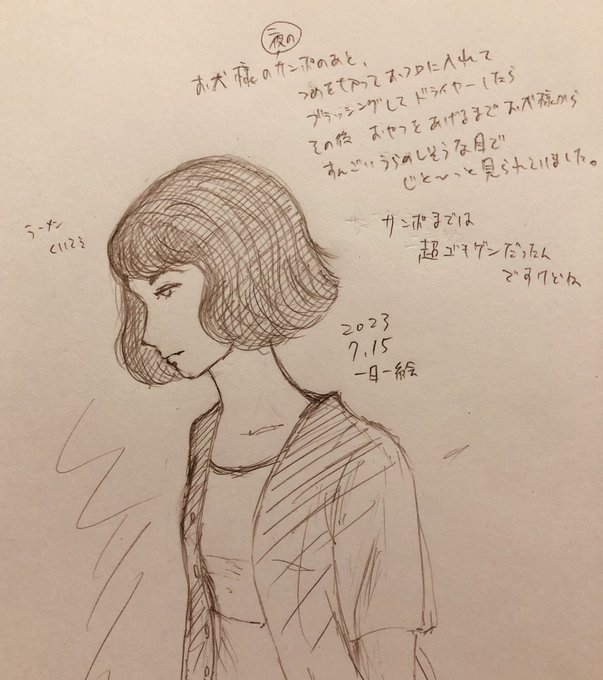 夜の
お犬様のサンポのあと、
つめをやっておフロに入れて
ブラッシングしてドライヤーしたら
その後 おやつをあげるまでお犬様から
すんごいうらめしそうな目で
じと〜っと見られていました。
サンポまでは
超ゴキゲンだったん
ですけどね
ラーメン
くいてぇ
2023
7.15
一日一絵